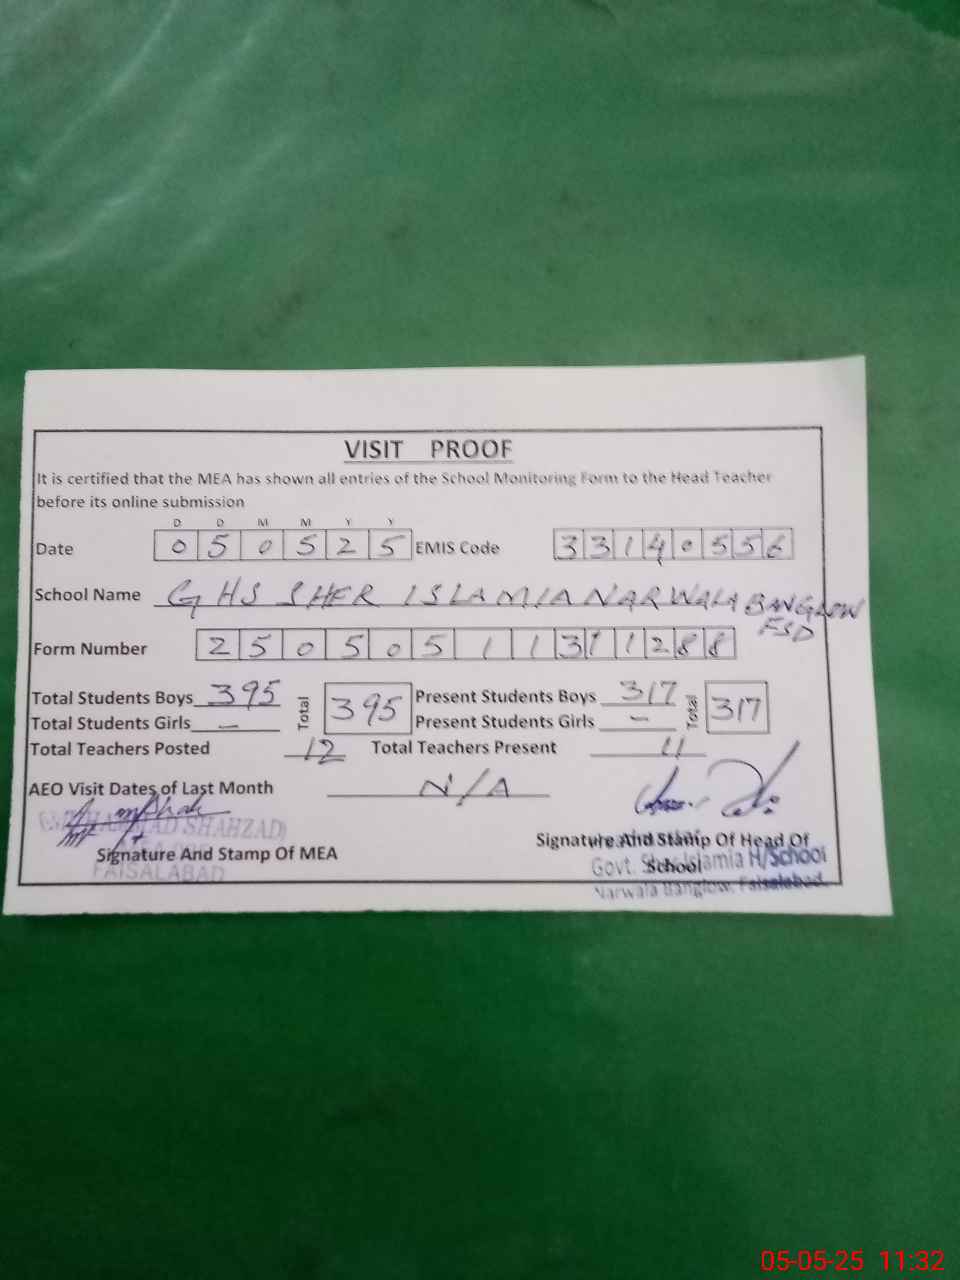 VISIT PROOF
It is certified that the MEA has shown all entries of the School Monitoring Form to the Head Teacher
before its online submission
D D M M Y Y
Date 0 5 0 5 2 5 EMIS Code 3 3 1 4 0 5 5 6
School Name GHS SHER ISLAMIA NARWALA BANGLOW
FSD
Form Number 2 5 0 5 0 5 1 1 3 1 1 2 8 8
Total Students Boys 395 Total 395 Present Students Boys 317 Total 317
Total Students Girls — Present Students Girls —
Total Teachers Posted 12 Total Teachers Present 11
AEO Visit Dates of Last Month N/A
(MUHAMMAD SHAHZAD)
Signature And Stamp Of MEA
FAISALABAD
Signature And Stamp Of Head Of
School
Govt. Sher Islamia H/School
Narwala Banglow, Faisalabad.
05-05-25 11:32